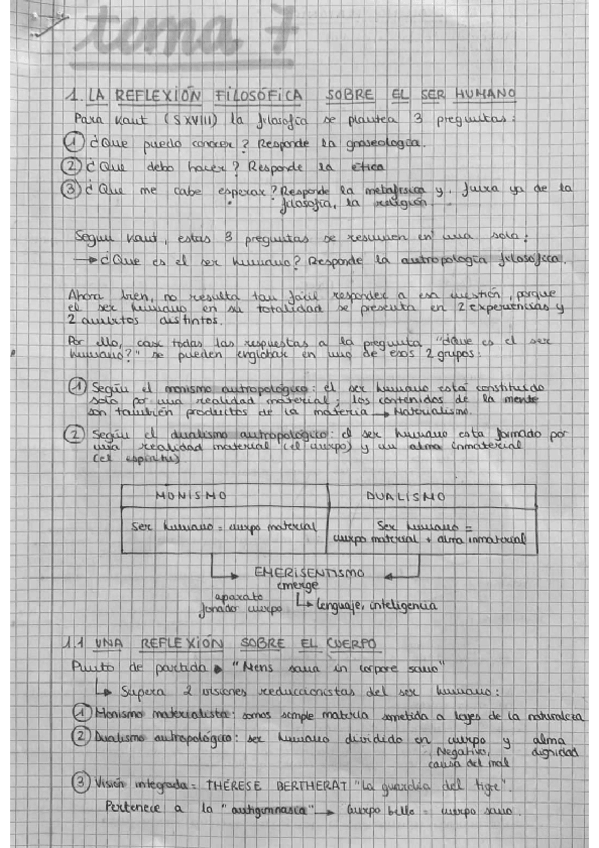 tema 7
1. LA REFLEXIÓN FILOSÓFICA SOBRE EL SER HUMANO
Para Kant (S XVIII) la filosofía se plantea 3 preguntas:
1 ¿Que puedo conocer? Responde la gnoseología.
2 ¿Que debo hacer? Responde la ética
3 ¿Que me cabe esperar? Responde la metafísica y, fuera ya de la
filosofía, la religión.
Según Kant, estas 3 preguntas se resumen en una sola:
→ ¿Que es el ser humano? Responde la antropología filosófica.
Ahora bien, no resulta tan fácil responder a esa cuestión, porque
el ser humano en su totalidad se presenta en 2 experiencias y
2 ámbitos distintos.
Por ello, casi todas las respuestas a la pregunta "¿que es el ser
humano?" se pueden englobar en uno de esos 2 grupos:
1 Según el monismo antropológico: el ser humano está constituido
solo por una realidad material; los contenidos de la mente
son también productos de la materia → Materialismo.
2 Según el dualismo antropológico: el ser humano esta formado por
una realidad material (el cuerpo) y un alma inmaterial
(el espíritu)
MONISMO DUALISMO
Ser humano = cuerpo material Ser humano =
cuerpo material + alma inmaterial
EMERISENTISMO
emerge
aparato
fonador cuerpo → lenguaje, inteligencia
1.1 UNA REFLEXIÓN SOBRE EL CUERPO
Punto de partida → "Mens sana in corpore sano"
→ Supera 2 visiones reduccionistas del ser humano:
1 Monismo materialista: somos simple materia sometida a leyes de la naturaleza
2 Dualismo antropológico: ser humano dividido en cuerpo y alma
Negativo, dignidad
causa del mal
3 Visión integrada = THÉRESE BERTHERAT "La guarida del tigre".
Pertenece a la "antigimnasia" → Cuerpo bello = cuerpo sano.